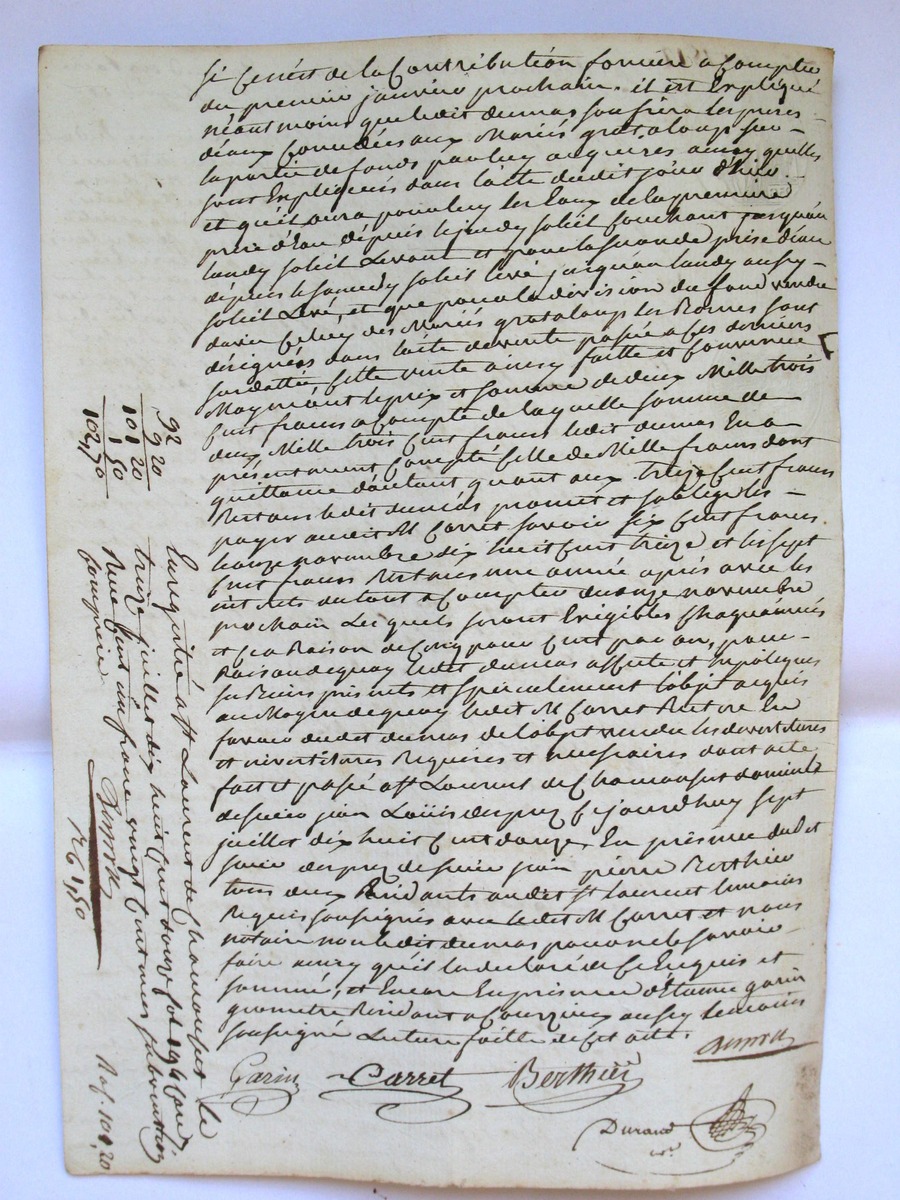 si ce n'est de la Contribution foncière a Compter
du premier janvier prochain. il est Expliqué
néantmoins que ledit dumas souffrira les prises
d'eaux Concédées aux Mariés grataloup sur
la partie de fonds par luy acquise ainsy quelles
sont Expliquées dans l'acte dudit jour d'hier
et qu'il aura pour luy les Eaux de la première
prise d'Eau depuis le jeudy soleil Couchant jusqu'au
lundy soleil Levant et pour la seconde prise d'eau
depuis le samedy soleil levé jusqu'au lundy aussy
soleil Levé, et que pour la division du fond vendu
d'avec Celuy des Mariés grataloup les Bornes sont
désignées dans l'acte de vente passée a Ces derniers
susdatté, Cette vente ainsy faitte et Convenue
Moyennant le prix et somme de deux Mille trois
Cent francs a Compte de laquelle somme de
deux Mille trois Cent francs ledit dumas En a
présentement Compté Celle de Mille francs dont
quittance d'autant quant aux treize Cent francs
Restans ledit dumas promet et s'oblige les
payer audit M Carret savoir six Cent francs
le onze novembre dix huit Cent treize et les sept
Cent francs Restans une année après avec les
intérêts du tout a Compter du onze novembre
prochain Lesquels seront Exigibles Chaque année
et ce a Raison de Cinq pour Cent par an, pour
Raison de quoy ledit dumas affecte et hipotèque
ses Biens présents et spécialement l'objet acquis
au Moyen de quoy ledit M Carret Retire En
faveur dudit dumas de l'objet vendu les devestitures
et investitures Requises et nécessaires dont acte
fait et passé a St Laurent de Chamousset domicile
de sieur jean Louis despuy Ce jourdhuy sept
juillet dix huit Cent douze En présence dudit
sieur despuy de sieur jean pierre Berthier
tous deux Résidants audit St laurent témoins
Requis soussignés avec ledit M Carret et nous
notaire non ledit dumas pour ne le savoir
faire ainsy qu'il l'a déclaré de Ce Enquis et
sommé, et Encore En présence d'Etienne garin
géomètre Résidant a Courzieu aussy témoins
soussigné Lecture faitte de Cet acte.
Garin Carret Berthier
Durand
92
9 20
101 20
1 50
102,70
Enregistré a St Laurent de Chamousset le
treize juillet dix huit Cent douze fol
Reçu Cent un francs vingt Centimes subvention
Comprise.